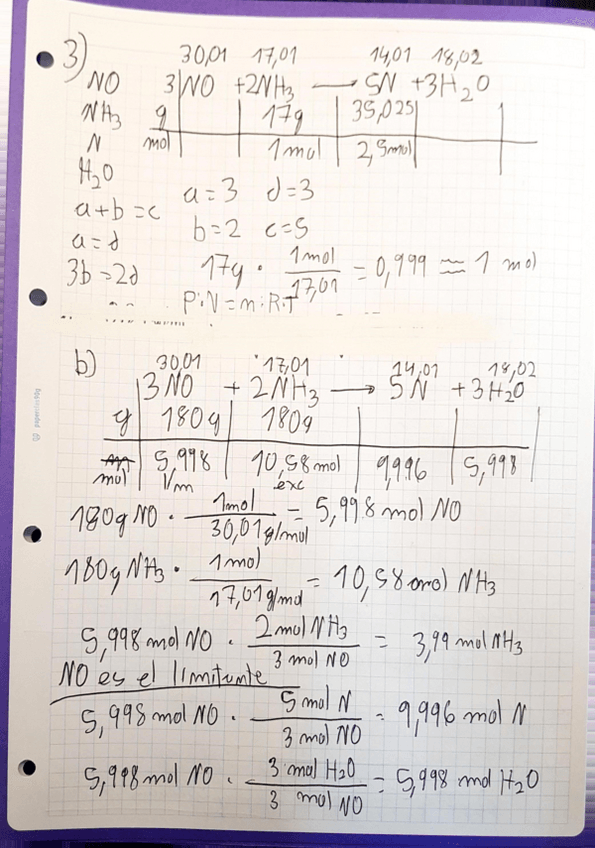 3)
30,01 17,01 14,01 18,02
NO 3 NO + 2NH₃ → 5N + 3H₂O
NH₃ g 17g 35,025
N mol 1 mol 2,5mol
H₂O
a+b=c a=3 d=3
a=d b=2 c=5
3b=2d 17g · 1mol / 17,01 = 0,999 ≈ 1 mol
P·V=n·R·T
b) 30,01 17,01 14,01 18,02
3 NO + 2NH₃ → 5N + 3H₂O
g 180g 180g
mol 5,998 10,58 mol 9,996 5,998
lim exc
180g NO · 1mol / 30,01 g/mol = 5,998 mol NO
180g NH₃ · 1mol / 17,01 g/mol = 10,58 mol NH₃
5,998 mol NO · 2 mol NH₃ / 3 mol NO = 3,99 mol NH₃
NO es el limitante
5,998 mol NO · 5 mol N / 3 mol NO = 9,996 mol N
5,998 mol NO · 3 mol H₂O / 3 mol NO = 5,998 mol H₂O